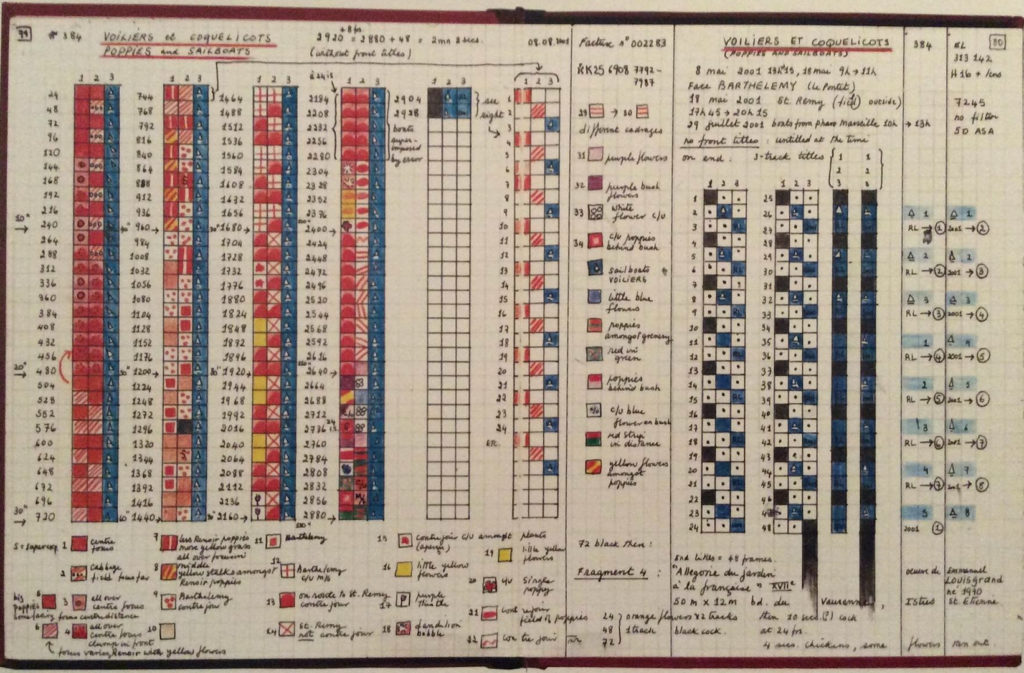 99
n° 384
VOILIERS et COQUELICOTS
POPPIES and SAILBOATS
2920 = 2880 + 48 = 2mn 2 secs.
(without front titles)
08.08.2001
1 2 3
24
48
72
96
120
144
168
192
216
240
264
288
312
336
360
384
408
432
456
480
504
528
552
576
600
624
648
672
696
720
10"
20"
30"
1 2 3
744
768
792
816
840
864
888
912
936
960
984
1008
1032
1056
1080
1104
1128
1152
1176
1200
1224
1248
1272
1296
1320
1344
1368
1392
1416
1440
1464
1488
1512
1536
1560
1584
1608
1632
1656
1680
1704
1728
1732
1776
1880
1824
1848
1872
1896
1920
1944
1968
1992
2016
2040
2064
2088
2112
2136
2160
2184
2208
2232
2256
2280
2304
2328
2352
2376
2400
2424
2448
2472
2496
2520
2544
2568
2592
2616
2640
2664
2688
2712
2736
2760
2784
2808
2832
2856
2880
2904
2928
boats
super-
imposed
by error
see
right
etc.
1 centre
focus
2 cabbage
3 all over
centre focus
4 all over
centre focus
clump in front
focus varies, Renoir with yellow flowers
7 less Renoir poppies
more yellow grass
all over
8 middle
yellow stalks amongst
Renoir poppies
9 Barthelemy
contre jour
10
11 Barthelemy
12 Barthelemy
c/u m/s
13 on route to St. Remy
contre jour
14 St. Remy
not contre jour
15 contre jour c/u amongst plants
16 little yellow
flowers
17 P purple
thistle
18 dandelion
bubble
19 little yellow
flowers
20 c/u single
poppy
21 contrejour
field of poppies
22 contre jour
Facture n° 002283
RK25 6908 7792-
7987
29 → 30
different cadrages
31 purple flowers
32 purple bush
flowers
33 white
flower c/u
34 c/u poppies
behind bush
sailboats
VOILIERS
little blue
flowers
poppies
amongst greenery
red in
green
poppies
behind bush
c/u blue
flower on bush
red strip
in distance
yellow flowers
amongst
poppies
72 black then:
Fragment 4:
24) orange flowers x 2 tracks
48) 1 track
72)
VOILIERS ET COQUELICOTS
(POPPIES AND SAILBOATS)
8 mai 2001 13h15, 18 mai 9h → 11h
Face BARTHELEMY (le Pontet)
18 mai 2001 St. Remy (field outside)
17h45 → 20h15
29 juillet 2001 boats from pharo Marseille 10h → 13h
no front titles: untitled at the time
on end. 3-track titles
1 1
2 2
3 3
1 2 3
1 2 3
1
2
3
4
5
6
7
8
9
10
11
12
13
14
15
16
17
18
19
20
21
22
23
24
25
26
27
28
29
30
31
32
33
34
35
36
37
38
39
40
41
42
43
44
45
46
47
48
End titles = 48 frames.
"Allegorie du jardin
à la française" XVIIe
50 m x 12m bd. du Vauranne,
then 10 secs. (?) cock
black cock. at 24 fps.
4 secs. chickens, some flowers
384
EL
313 142
H16 + lens
80
7245
no filter
50 ASA
Δ 1 Δ 1
RL → 1 2001 → 2
Δ 2 Δ 2
RL → 2 2001 → 3
Δ 3 Δ 3
RL → 3 2001 → 4
1 Δ 4
RL → 4 2001 → 5
2 Δ 5
RL → 5 2001 → 6
3 Δ 6
RL → 6 2001 → 7
4 Δ 7
RL → 7 2001 → 8
5 Δ 8
2001 2
oeuvre de Emmanuel
Louisgrand
né 1970
Istres St. Etienne
ran out